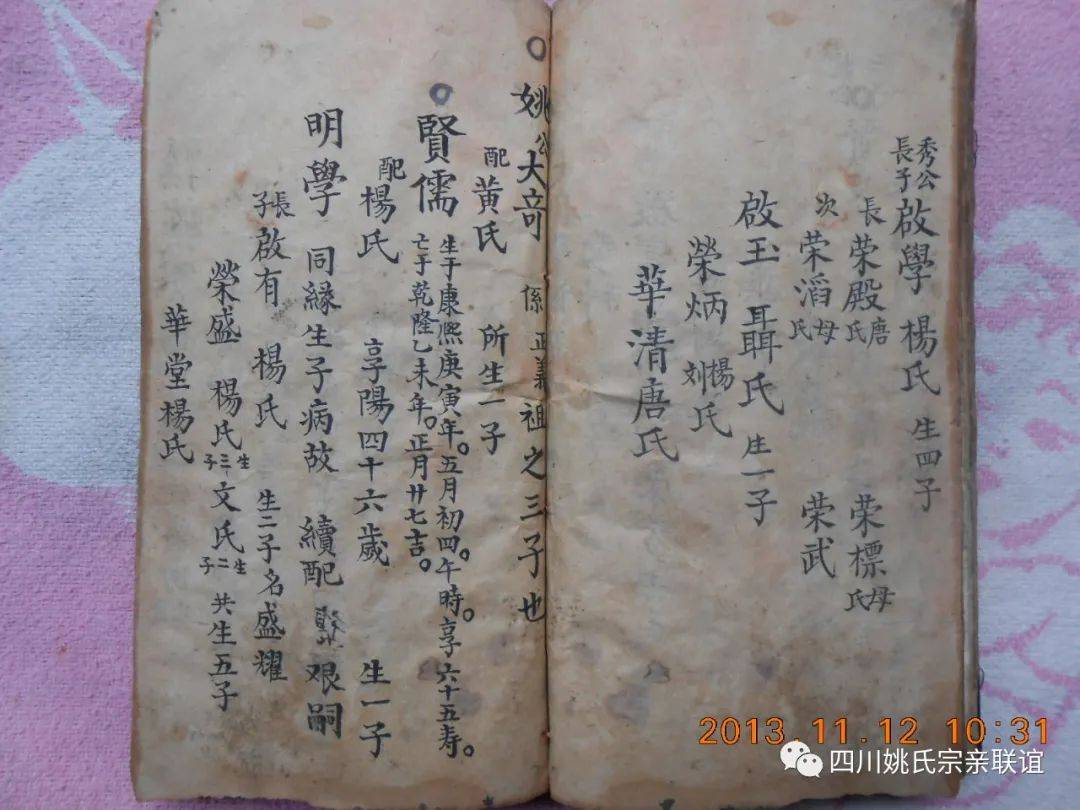 秀公長子啟學 楊氏 生四子
長荣殿唐氏 荣標母氏
次荣滔母氏 荣武
啟玉 聶氏 生一子
榮炳楊刘氏
華清唐氏
姚公大奇 係正義祖之三子也
配黄氏 所生一子
賢儒 生于康熙庚寅年。五月初四。午時。享六十五寿。
亡于乾隆乙未年。正月廿七吉。
配楊氏 享陽四十六歲 生一子
明學 同緣生子病故 續配 艰嗣
長子啟有 楊氏 生二子名盛耀
榮盛 楊氏生三子文氏生二子共生五子
華堂楊氏
2013.11.12 10:31
四川姚氏宗亲联谊